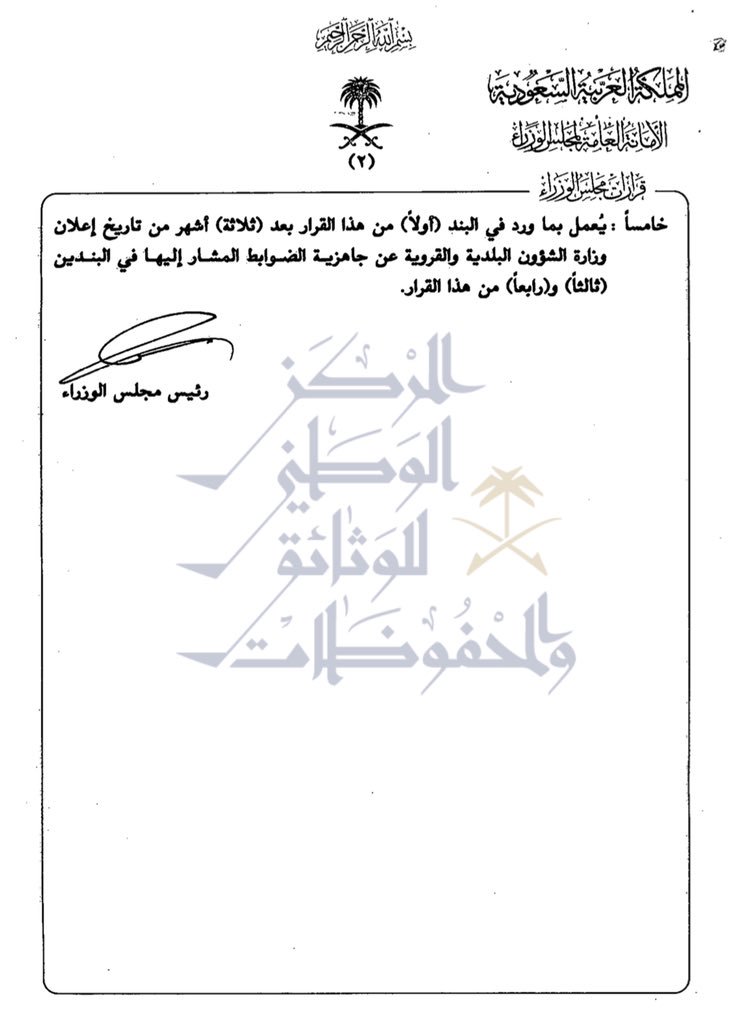 بسم الله الرحمن الرحيم
المملكة العربية السعودية
الأمانة العامة لمجلس الوزراء
(٢)
قرارات مجلس الوزراء
خامساً : يُعمل بما ورد في البند (أولاً) من هذا القرار بعد (ثلاثة) أشهر من تاريخ إعلان
وزارة الشؤون البلدية والقروية عن جاهزية الضوابط المشار إليها في البندين
(ثالثاً) و(رابعاً) من هذا القرار.
رئيس مجلس الوزراء
المركز
الوطني
للوثائق
والمحفوظات